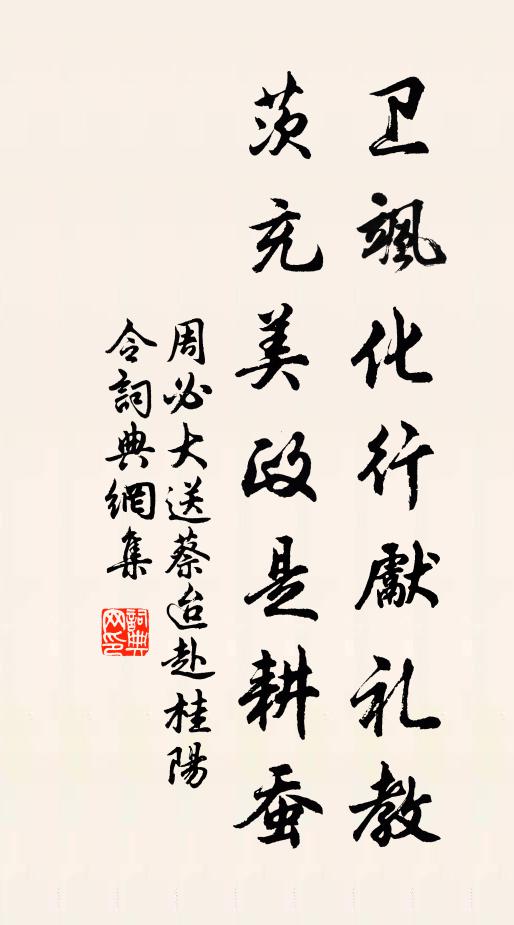 卫飒化行獻礼教
茨充美政是耕蚕
周必大送蔡迨赴桂陽
令詞典網集
詞典
网印